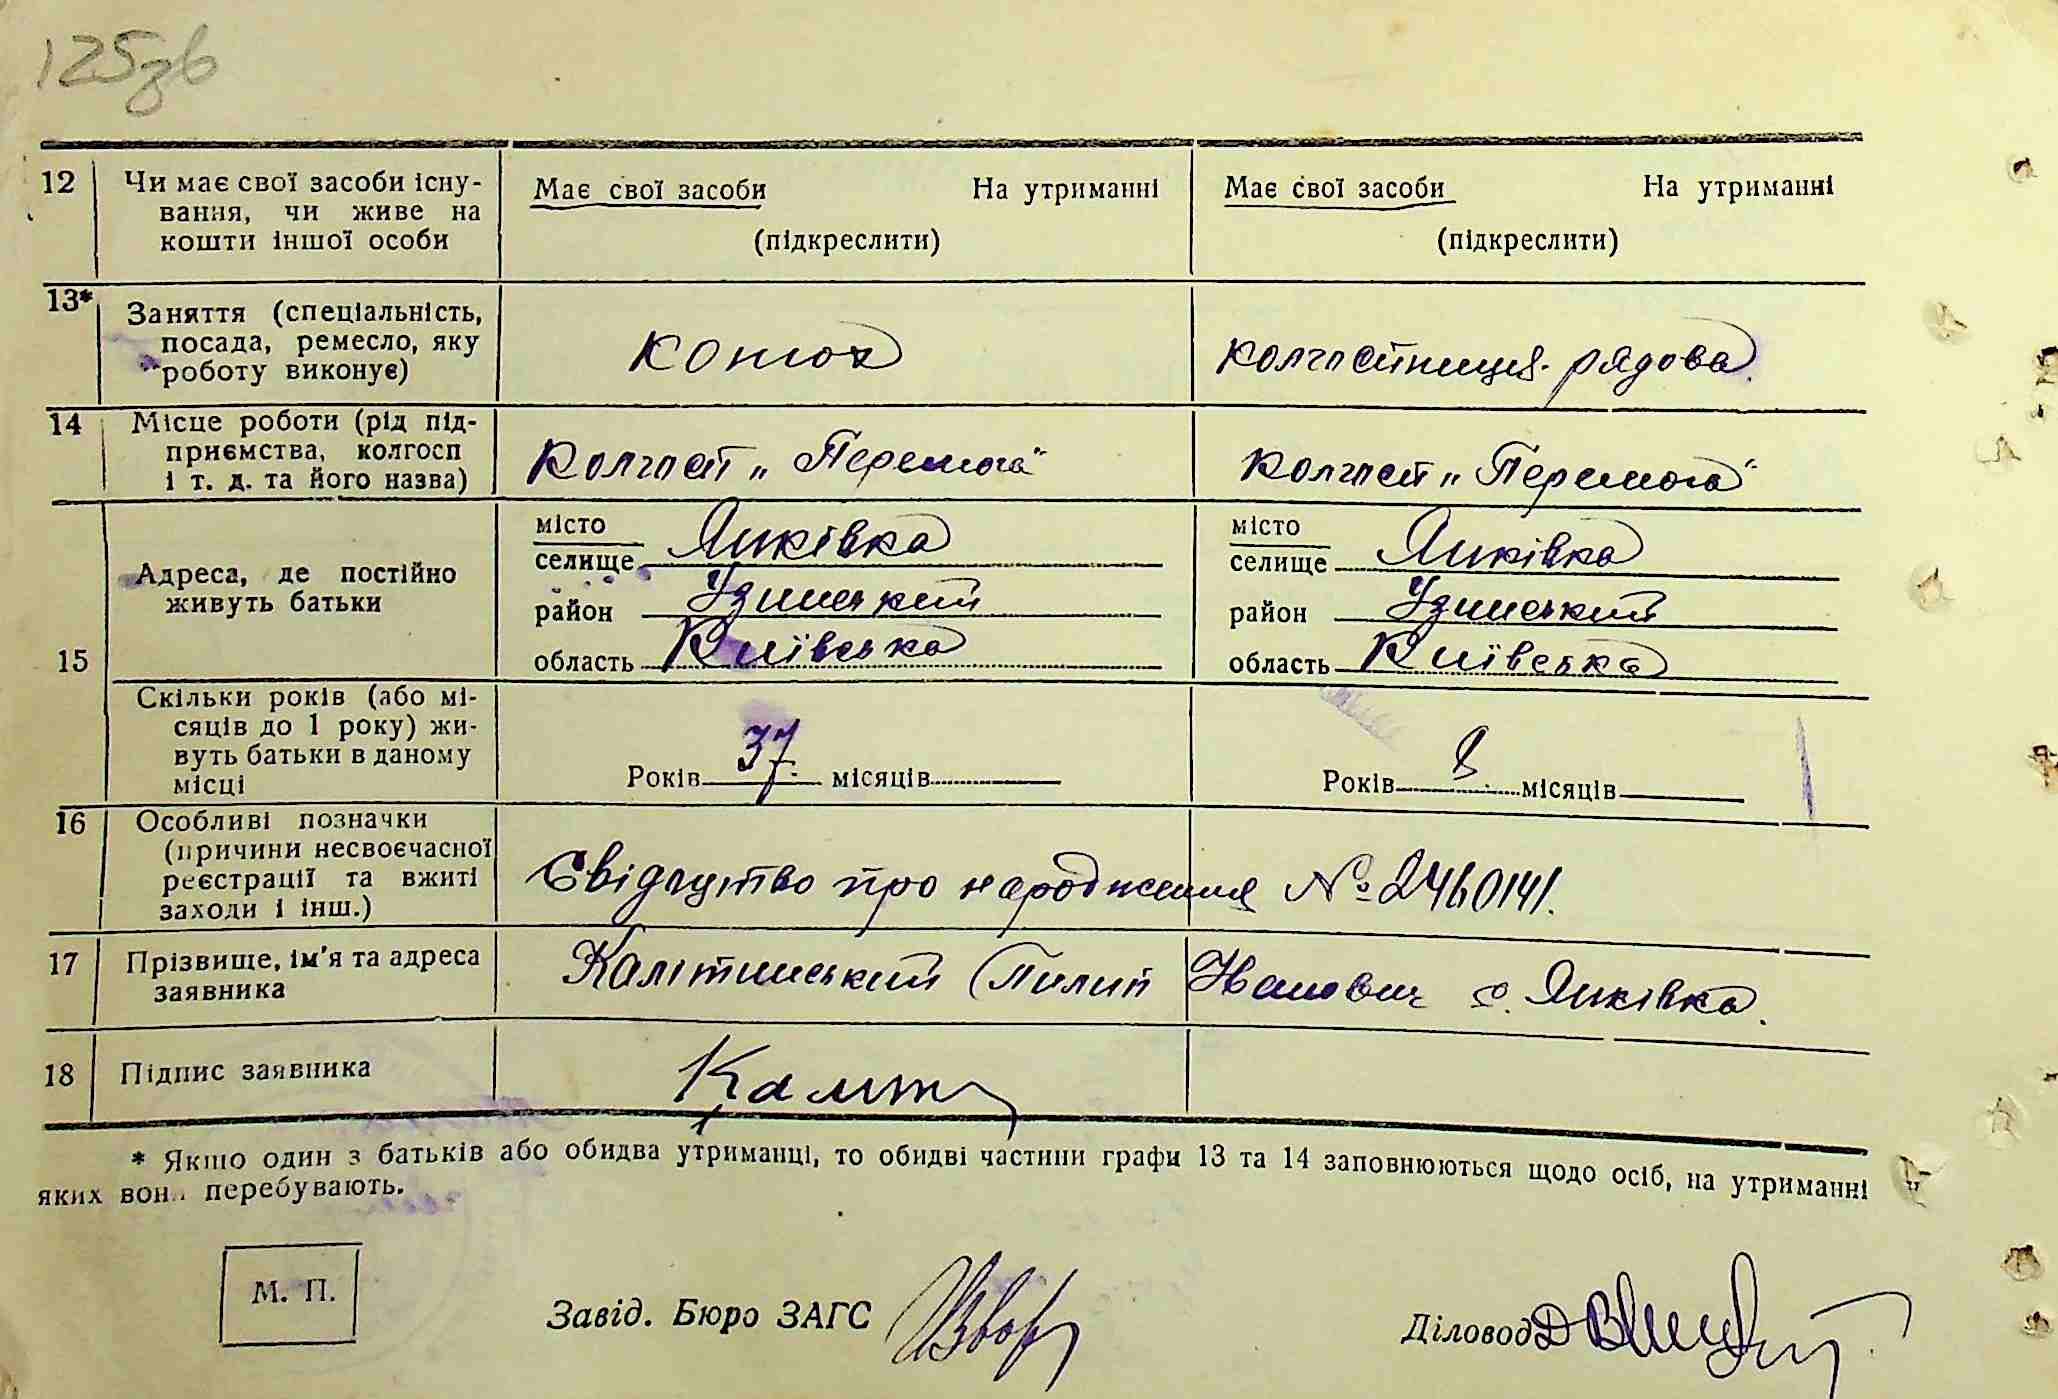 125зв
12 Чи має свої засоби існу-
вання, чи живе на
кошти іншої особи
Має свої засоби На утриманні
(підкреслити)
Має свої засоби На утриманні
(підкреслити)
13* Заняття (спеціальність,
посада, ремесло, яку
роботу виконує)
конюх
колгоспниця рядова
14 Місце роботи (рід під-
приємства, колгосп
і т. д. та його назва)
колгосп „Перемога"
колгосп „Перемога"
15 Адреса, де постійно
живуть батьки
місто
селище Янківка
район Узинський
область Київська
місто
селище Янківка
район Узинський
область Київська
Скільки років (або мі-
сяців до 1 року) жи-
вуть батьки в даному
місці
Років 37 місяців
Років 8 місяців
16 Особливі позначки
(причини несвоєчасної
реєстрації та вжиті
заходи і інш.)
Свідоцтво про народження № 2460141.
17 Прізвище, ім'я та адреса
заявника
Калітинський Пилип Іванович с. Янківка.
18 Підпис заявника
* Якщо один з батьків або обидва утриманці, то обидві частини графи 13 та 14 заповнюються щодо осіб, на утриманні
яких вони перебувають.
М. П.
Завід. Бюро ЗАГС
Діловод